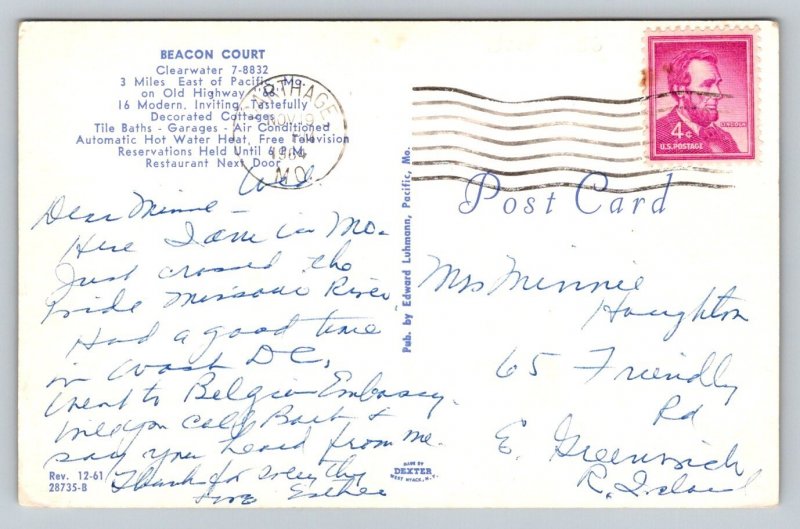 BEACON COURT
Clearwater 7-8832
3 Miles East of Pacific, Mo.
on Old Highway 66
16 Modern, Inviting, Tastefully
Decorated Cottages
Tile Baths - Garages - Air Conditioned
Automatic Hot Water Heat, Free Television
Reservations Held Until 6 P.M.
Restaurant Next Door
CARTHAGE
NOV 19
1964
MO.
4¢
LINCOLN
U.S. POSTAGE
Post Card
Pub. by Edward Luhmann, Pacific, Mo.
Wed.
Dear Minnie -
Here I am in Mo.
Just crossed the
wide Missouri River.
Had a good time
in Wash D.C.,
went to Belgian Embassy.
call Back &
say you heard from me.
Thanks for everything
Love Esther
Mrs Minnie
Houghton
65 Friendly
Rd
E. Greenwich
R. Island
Rev. 12-61
28735-B
MADE BY
DEXTER
WEST NYACK, N.Y.